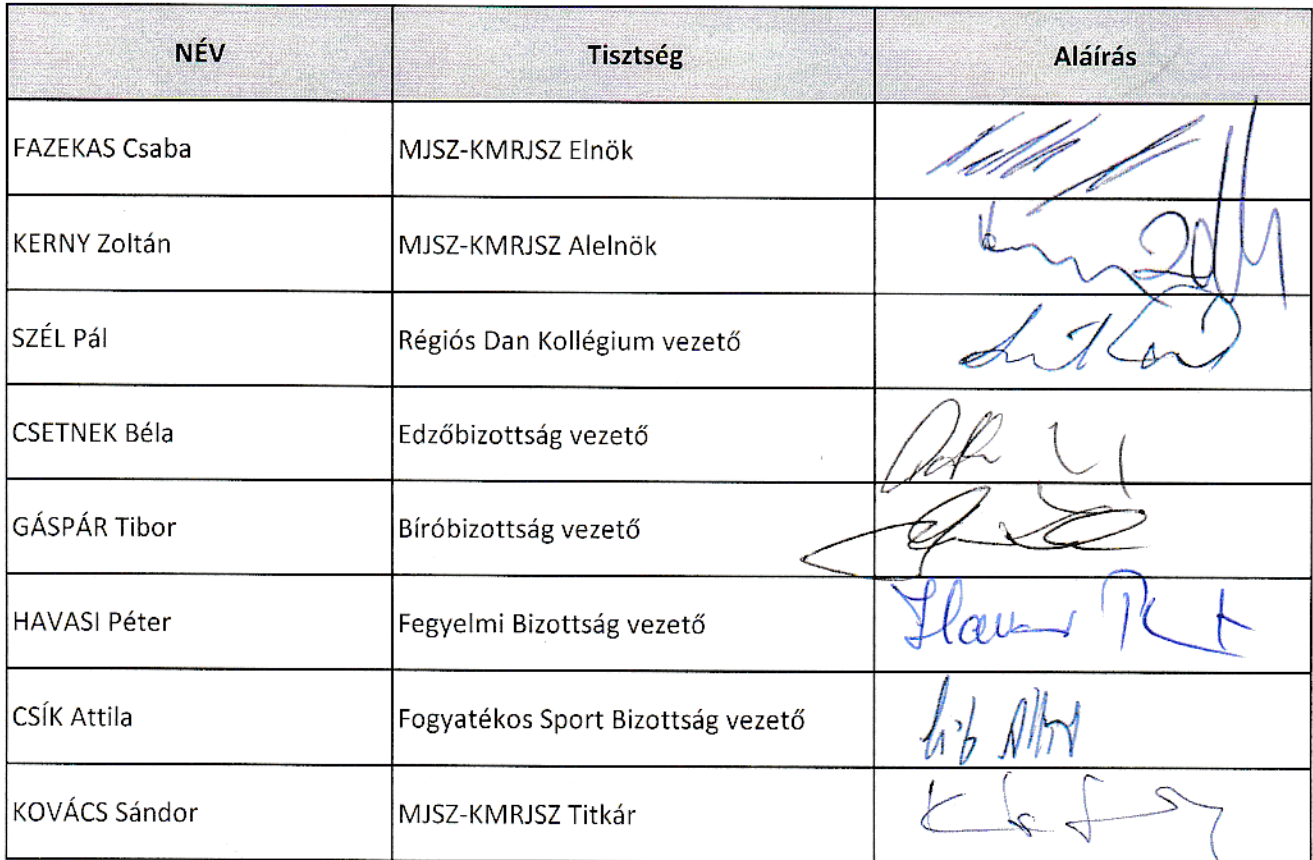 NÉV Tisztség Aláírás
FAZEKAS Csaba MJSZ-KMRJSZ Elnök
KERNY Zoltán MJSZ-KMRJSZ Alelnök
SZÉL Pál Régiós Dan Kollégium vezető
CSETNEK Béla Edzőbizottság vezető
GÁSPÁR Tibor Bíróbizottság vezető
HAVASI Péter Fegyelmi Bizottság vezető
CSÍK Attila Fogyatékos Sport Bizottság vezető
KOVÁCS Sándor MJSZ-KMRJSZ Titkár